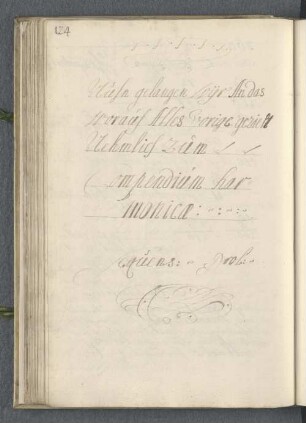 124
Nuhn gelangen Wÿr An das
Worauf Alles Vorige gezielt
Nehmlich Zum
Compendium har
monicæ